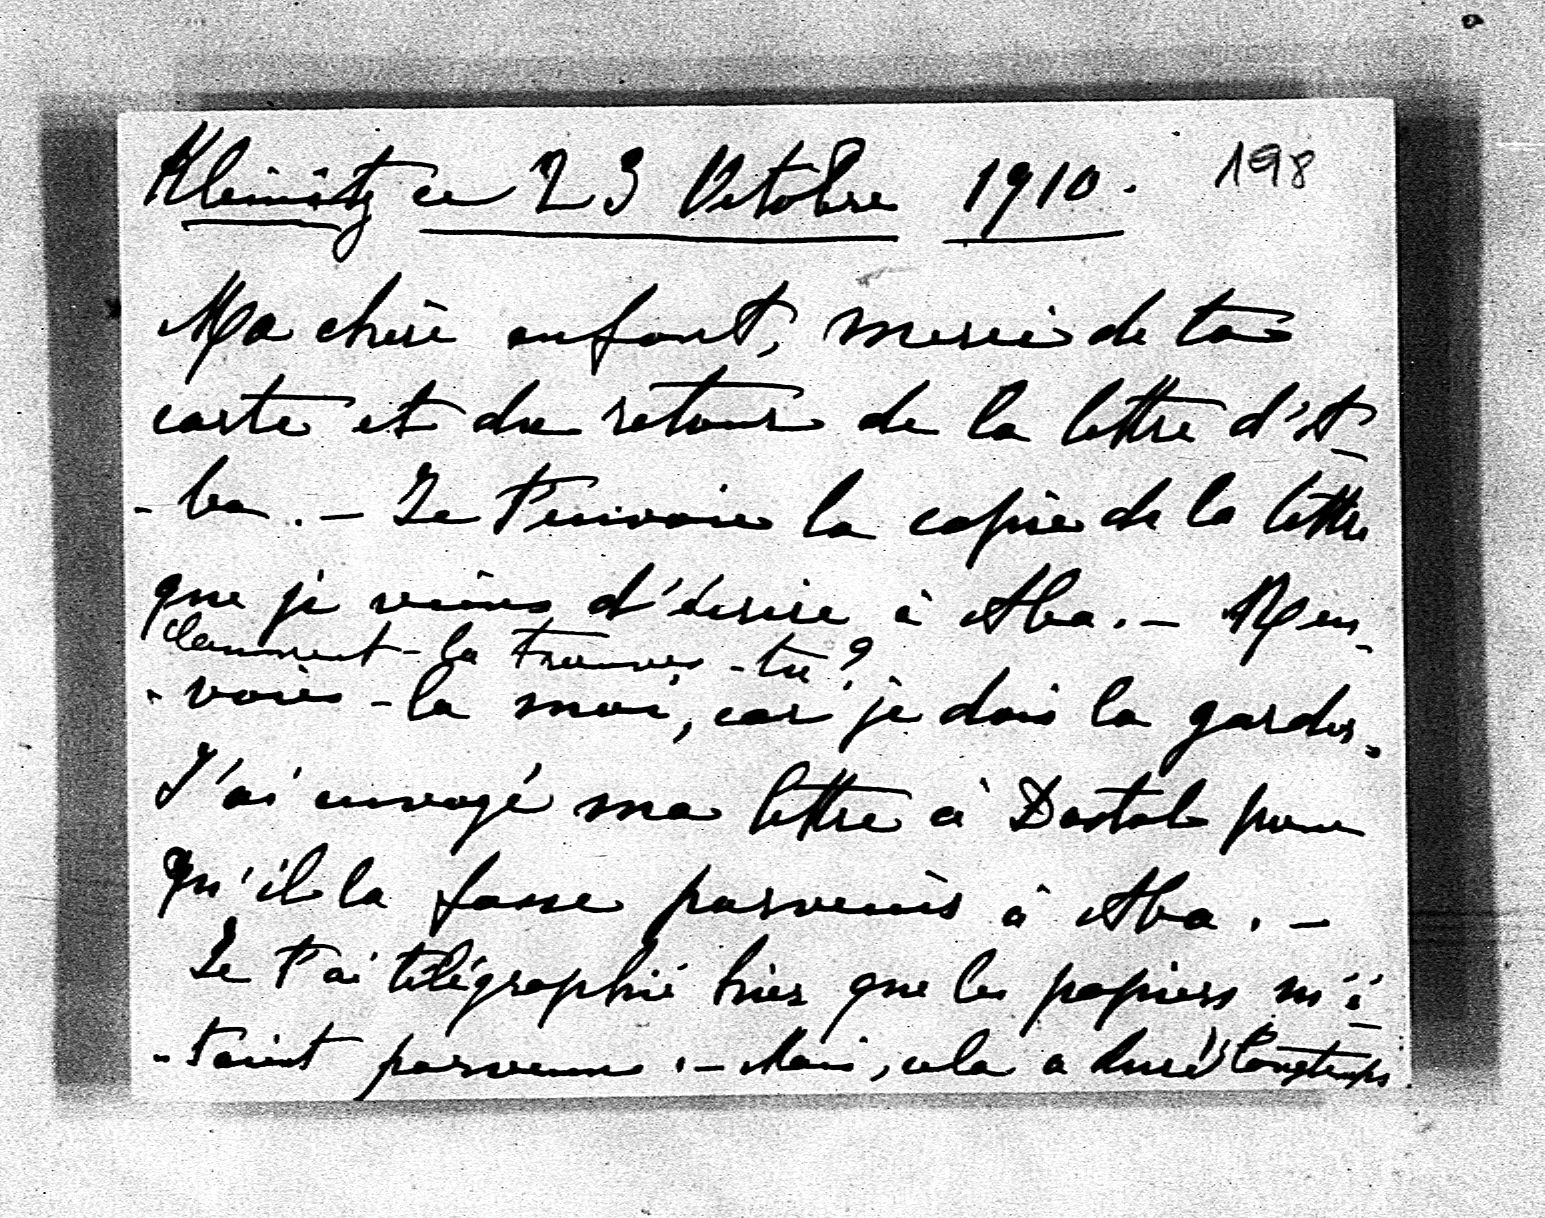 Kleinitz ce 23 Octobre 1910. 198
Ma chère enfant, merci de ta
carte et du retour de la lettre d'A-
-ba. — Je t'envoie la copie de la lettre
que je viens d'écrire à Aba. — Ren-
Comment-la trouves-tu?
-voies-la moi, car je dois la garder.
J'ai envoyé ma lettre à Dostal pour
qu'il la fasse parvenir à Aba. —
Je t'ai télégraphié hier que les papiers m'é-
-taient parvenus. — Mais, cela a duré longtemps